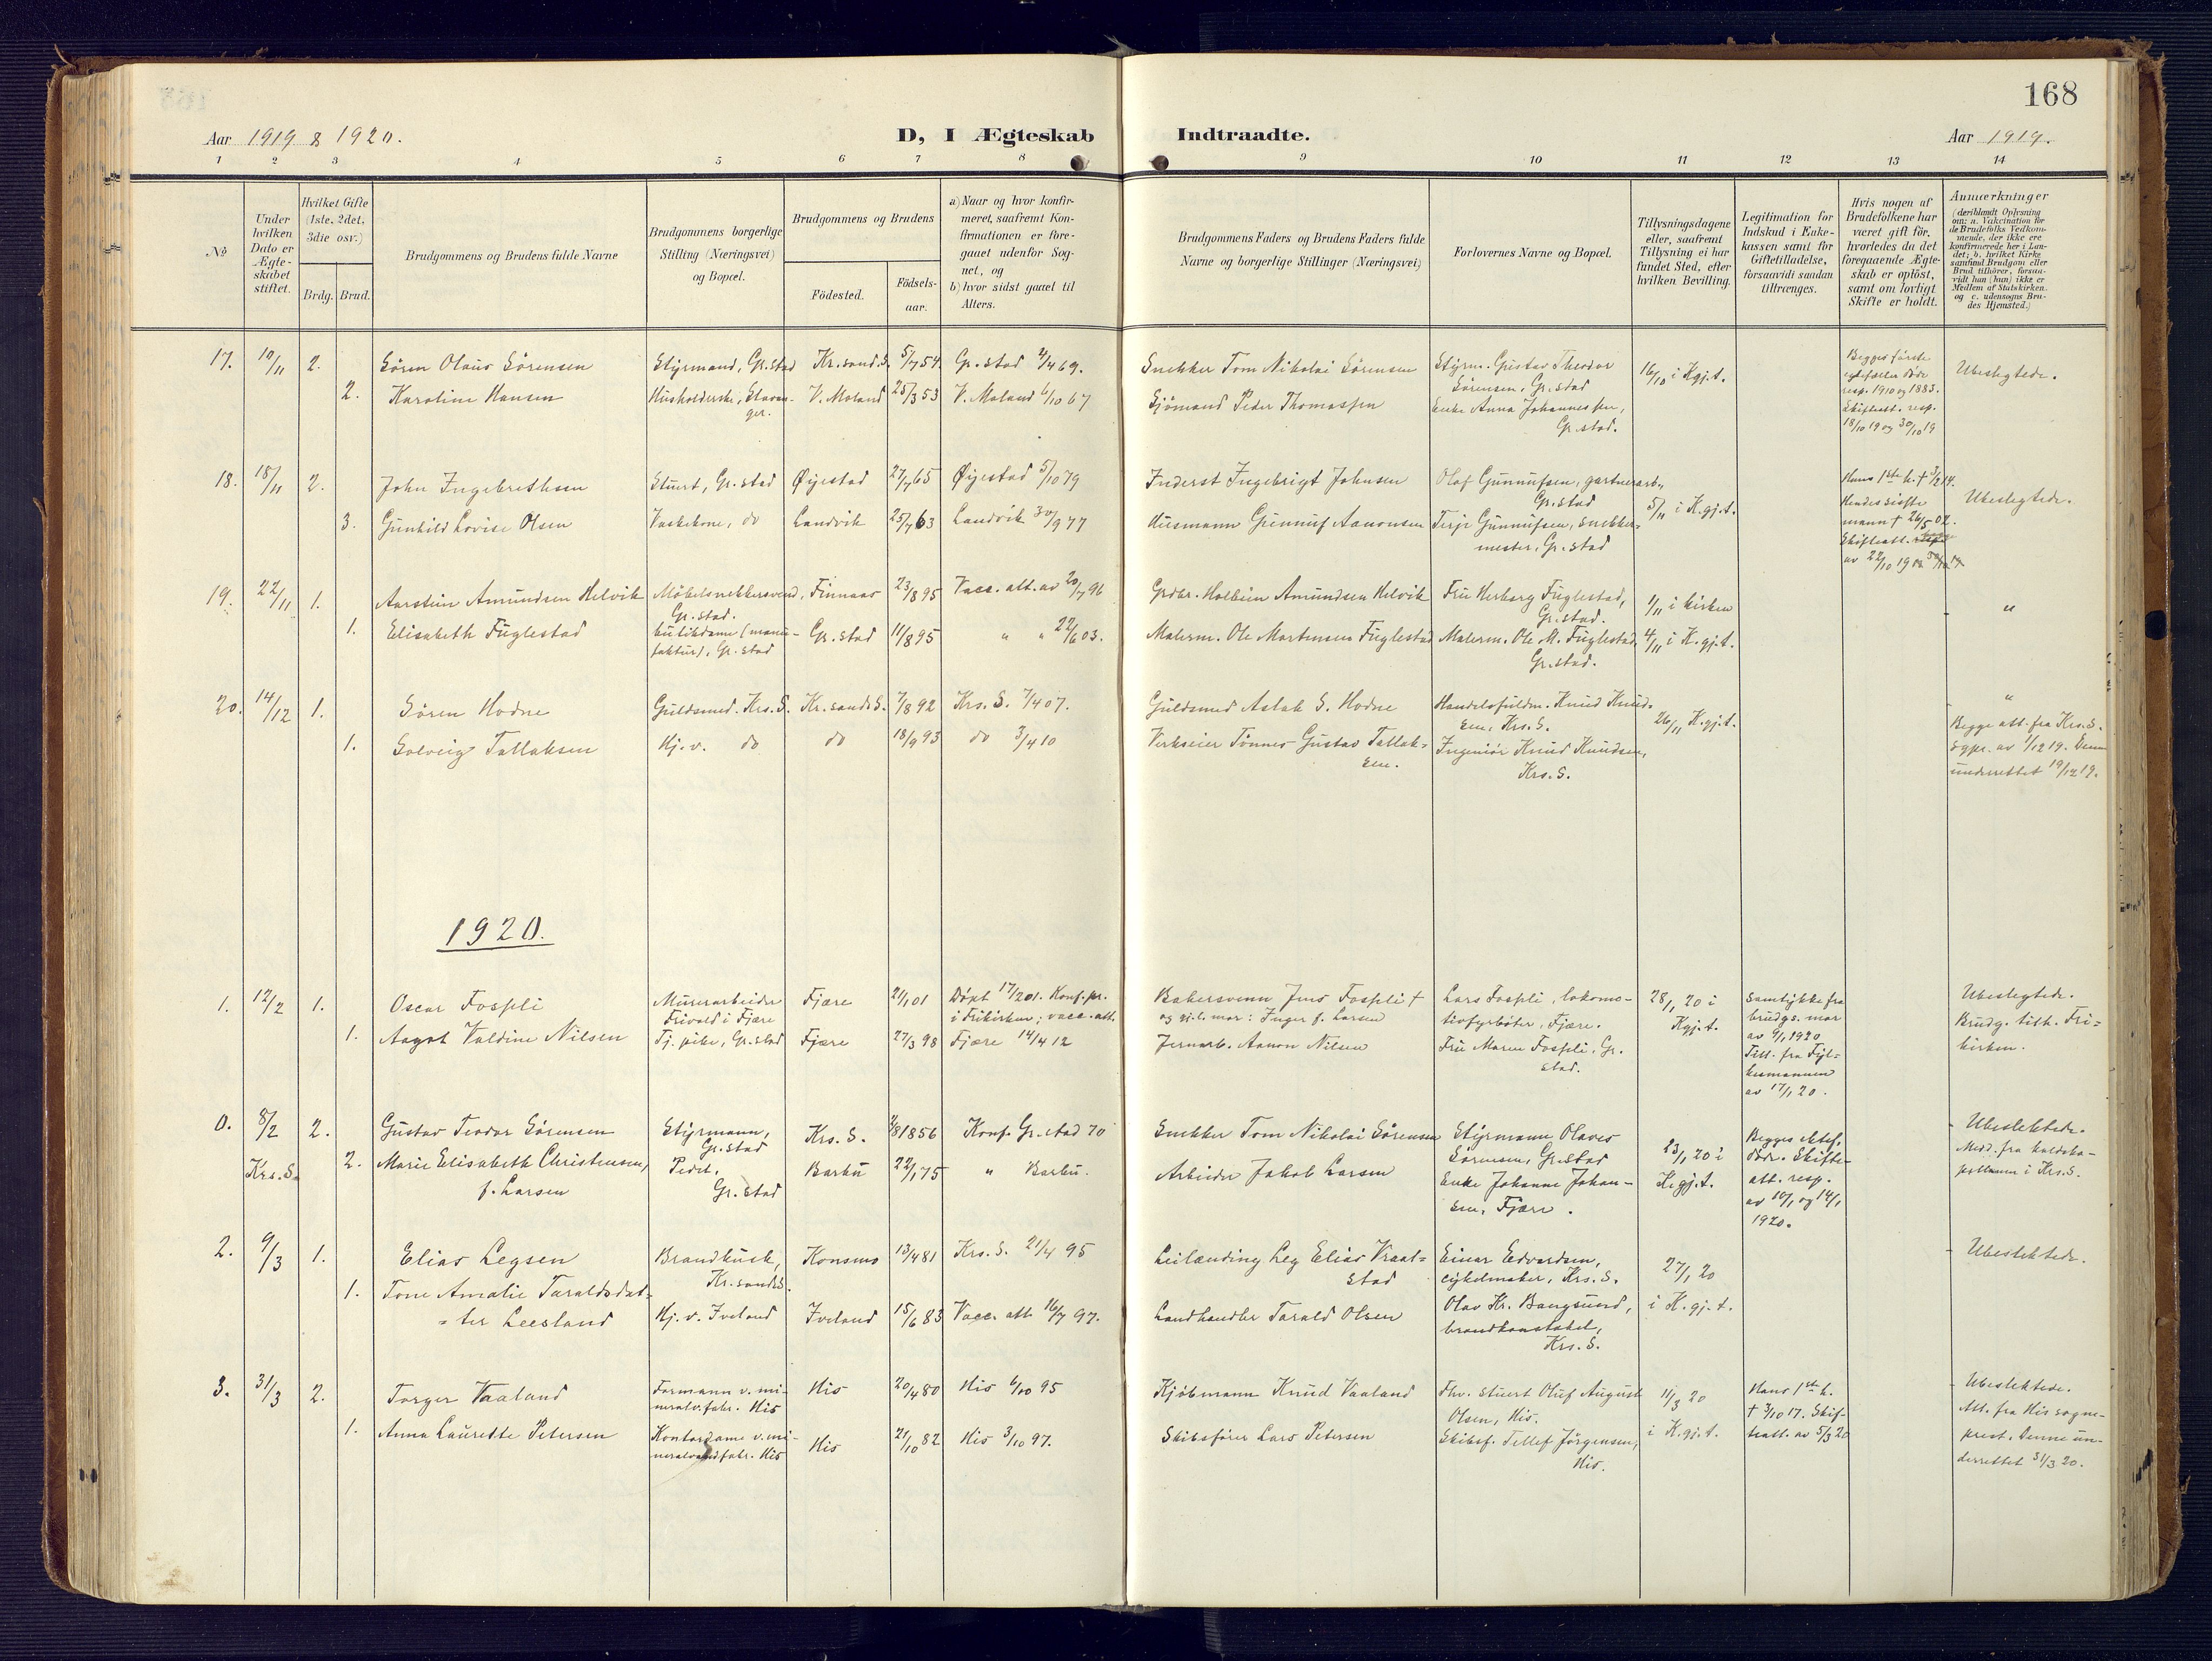 168
Aar 1919 & 1920.
D, I Ægteskab
Indtraadte.
Aar 1919.
1 2 3 4 5 6 7 8 9 10 11 12 13 14
No
Under hvilken Dato er Ægteskabet stiftet.
Hvilket Gifte (1ste, 2det, 3die osv.)
Brdg. Brud.
Brudgommens og Brudens fulde Navne
Brudgommens borgerlige Stilling (Næringsvei) og Bopæl.
Brudgommens og Brudens
Födested.
Födsels-aar.
a) Naar og hvor konfirmeret, saafremt Konfirmationen er foregaaet udenfor Sognet, og
b) hvor sidst gaaet til Alters.
Brudgommens Faders og Brudens Faders fulde Navne og borgerlige Stillinger (Næringsvei)
Forlovernes Navne og Bopæl.
Tillysningsdagene eller, saafremt Tillysning ei har fundet Sted, efter hvilken Bevilling.
Legitimation for Indskud i Enkekassen samt for Giftetilladelse, forsaavidt saadan tiltrænges.
Hvis nogen af Brudefolkene har været gift för, hvorledes da det foregaaende Ægteskab er oplöst, samt om lovligt Skifte er holdt.
Anmærkninger (deriblandt Oplysning om: a. Vakcination for de Brudefolks Vedkommende, der ikke ere konfirmerede her i Landet; b. hvilket Kirkesamfund Brudgom eller Brud tilhörer, forsaavidt han (hun) ikke er Medlem af Statskirken. og c. udensogns Brudes Hjemsted.)
17. 10/11 2. Sören Olaus Sörensen Styrmand, Gr.stad Kr.sand.S. 5/7 54 Gr.stad 4/4 69. Snekker Tom Nikolai Sörensen Styrm. Gustav Theodor Sörensen, Gr.stad 16/10 i Kgj.t. Begges første egtefæller døde resp. 1910 og 1883. Skifteatt. resp. 18/10 19 og 30/10 19 Ubeslegtede.
2. Karoline Hansen Husholderske, Stavanger. V. Moland 25/3 53 V. Moland 6/10 67 Sjömand Peder Thomassen Enke Anna Johannessen, Gr.stad.
18. 18/11 2. John Ingebrethsen Stuert, Gr.stad Øyestad 27/7 65 Øyestad 5/10 79 Inderst Ingebrigt Johnsen Olaf Gunnufsen, gartnerarb., Gr.stad 5/11 i K.gj.t. Hans 1ste h. † 3/2 14. Hendes sidste mann † 26/5 02. Skifteatt. av 22/10 19 Ubeslegtede.
3. Gunhild Lovise Olsen Vaskekone, do Landvik 25/7 63 Landvik 30/9 77 Husmann Gunnuf Aanonsen Terje Gunnufsen, snekkermester, Gr.stad
19. 22/11 1. Aarstein Amundsen Helvik Möbelsnekkersvend, Gr.stad. Finnaas 23/8 95 Vacc. att. av 20/7 96 Grdbr. Holbein Amundsen Helvik Fru Herborg Fuglestad, Gr.stad. 1/11 i kirken "
1. Elisabeth Fuglestad butikdame (manufaktur), Gr.stad Gr.stad 11/8 95 " " 22/6 03. Malerm. Ole Martensen Fuglestad Malerm. Ole M. Fuglestad, Gr.stad. 4/11 i K.gj.t.
20. 14/12 1. Sören Hodne Guldsmed. Krs.S. Kr.sandS. 7/8 92 Krs.S. 7/4 07. Guldsmed Aslak S. Hodne Handelsfuldm. Knud Knudsen, Krs.S. 26/11 K.gj.t. " Begge att. fra Krs.S. Sgpr. av 1/12 19. Denne underrettet 19/12 19.
1. Solveig Tallaksen Hj.v. do do 18/9 93 do 3/4 10 Verkseier Tönnes Gustav Tallaksen. Ingeniör Knud Knudsen, Krs.S.
1920.
1. 12/2 1. Oscar Fospli Murerarbeider Frivold i Fjære Fjære 21/1 01 Döpt 17/2 01. Konf. pr. i Frikirken; vacc. att. Bakersvenn Jens Fospli † og g.l. mor: Inger f. Larsen Lars Fospli, lokomotivfyrböter, Fjære. 28/1 20 i Kgj.t. Samtykke fra brudgs. mor av 9/1 1920 Till. fra Fylkesmannen av 17/1 20. Ubeslegtede. Brudg. tilh. Frikirken.
1. Aagot Valdine Nilsen Tj.pike, Gr.stad Fjære 27/3 98 Fjære 14/4 12 Jernarb. Aanon Nilsen Fru Maren Fospli, Gr.stad.
0. 8/2 Krs.S. 2. Gustav Teodor Sörensen Styrmann, Gr.stad Krs.S. 1856 Konf. Gr.stad 70 Snekker Tom Nikolai Sörensen Styrmann Olaves Sörensen, Gr.stad 23/1 20 i K.gj.t. Begges ektef. döde. Skifteatt. resp. av 10/1 og 14/1 1920. Ubeslektede. Medd. fra kaldskapellanen i Krs.S.
2. Marie Elisabeth Christensen, f. Larsen Gr.stad Barbu 22/1 75 " Barbu. Arbeider Jakob Larsen Enke Johanne Johansen, Fjære.
2. 9/3 1. Elias Legsen Brandkusk, Kr.sandS. Konsmo 13/4 81 Krs.S. 21/4 95 Leilænding Leg Elias Vraalstad Einar Edvardsen, cykelmaker, Krs.S. 27/1 20 i K.gj.t. Ubeslektede.
1. Tone Amalie Taraldsdatter Leesland Hj.v. Iveland Iveland 15/6 83 Vacc. att. 16/7 97. Landhandler Tarald Olsen Olav Kr. Bangsund, brandkonstabel, Krs.S.
3. 31/3 2. Torger Vaaland Formann v. mineralv.fabr. His His 20/4 80 His 6/10 95 Kjöbmann Knud Vaaland Fhv. stuert Oluf August Olsen, His. 11/3 20 i K.gj.t. Hans 1ste h. † 3/10 17. Skifteatt. av 5/3 20 Ubeslektede. Att. fra His sogneprest. Denne underrettet 31/3 20.
1. Anna Laurette Petersen Kontordame v. mineralvandfabr. His His 21/10 82 His 3/10 97. Skibsförer Lars Petersen Skibsf. Tellef Jörgensen, His.